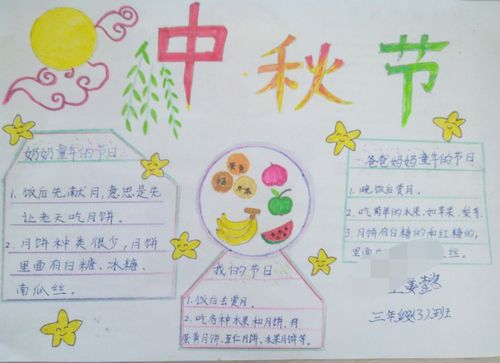 中秋节
奶奶童年的节日
1. 饭后先献月,意思是先
让老天吃月饼。
2. 月饼种类很少,月饼
里面有白糖、冰糖、
南瓜丝。
蛋黄
苹果
我的节日
1. 饭后去赏月。
2. 吃各种水果和月饼,有
蛋黄月饼、五仁月饼、水果月饼等。
爸爸妈妈童年的节日
1. 晚饭后赏月。
2. 吃简单的水果,如苹果、梨等
3. 月饼有白糖的和红糖的,
里面
丝。
三年级(3)班